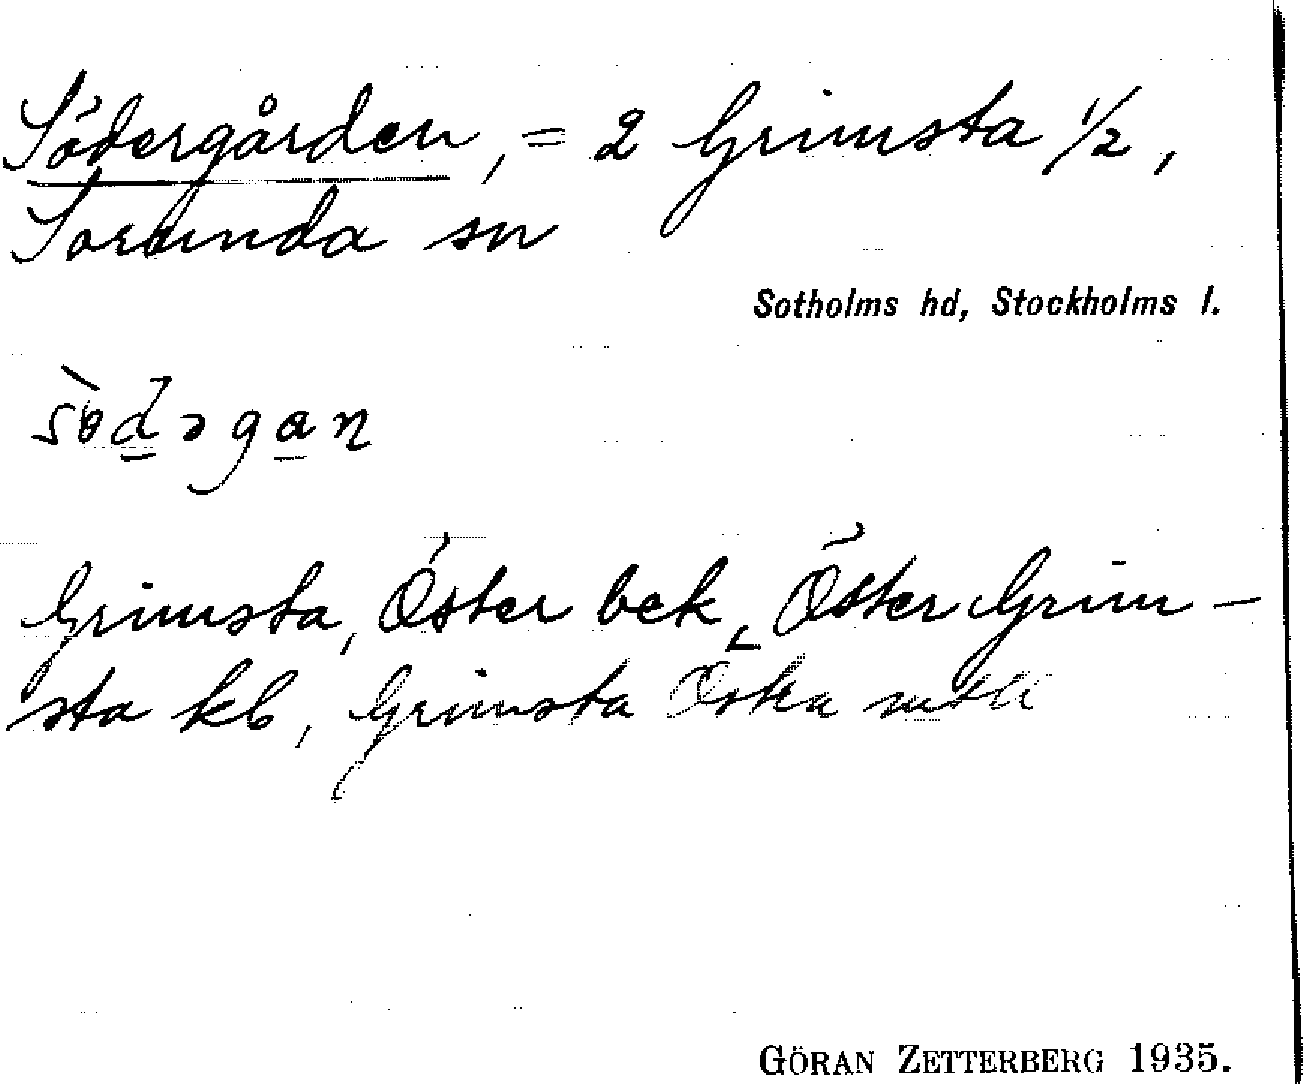 Södergården, = 2 Grimsta 1/2,
Sorunda sn
Sotholms hd, Stockholms l.
sὸdəgan
Grimsta, Öster bek, Öster Grim-
sta kb, Grimsta Östra
GÖRAN ZETTERBERG 1935.